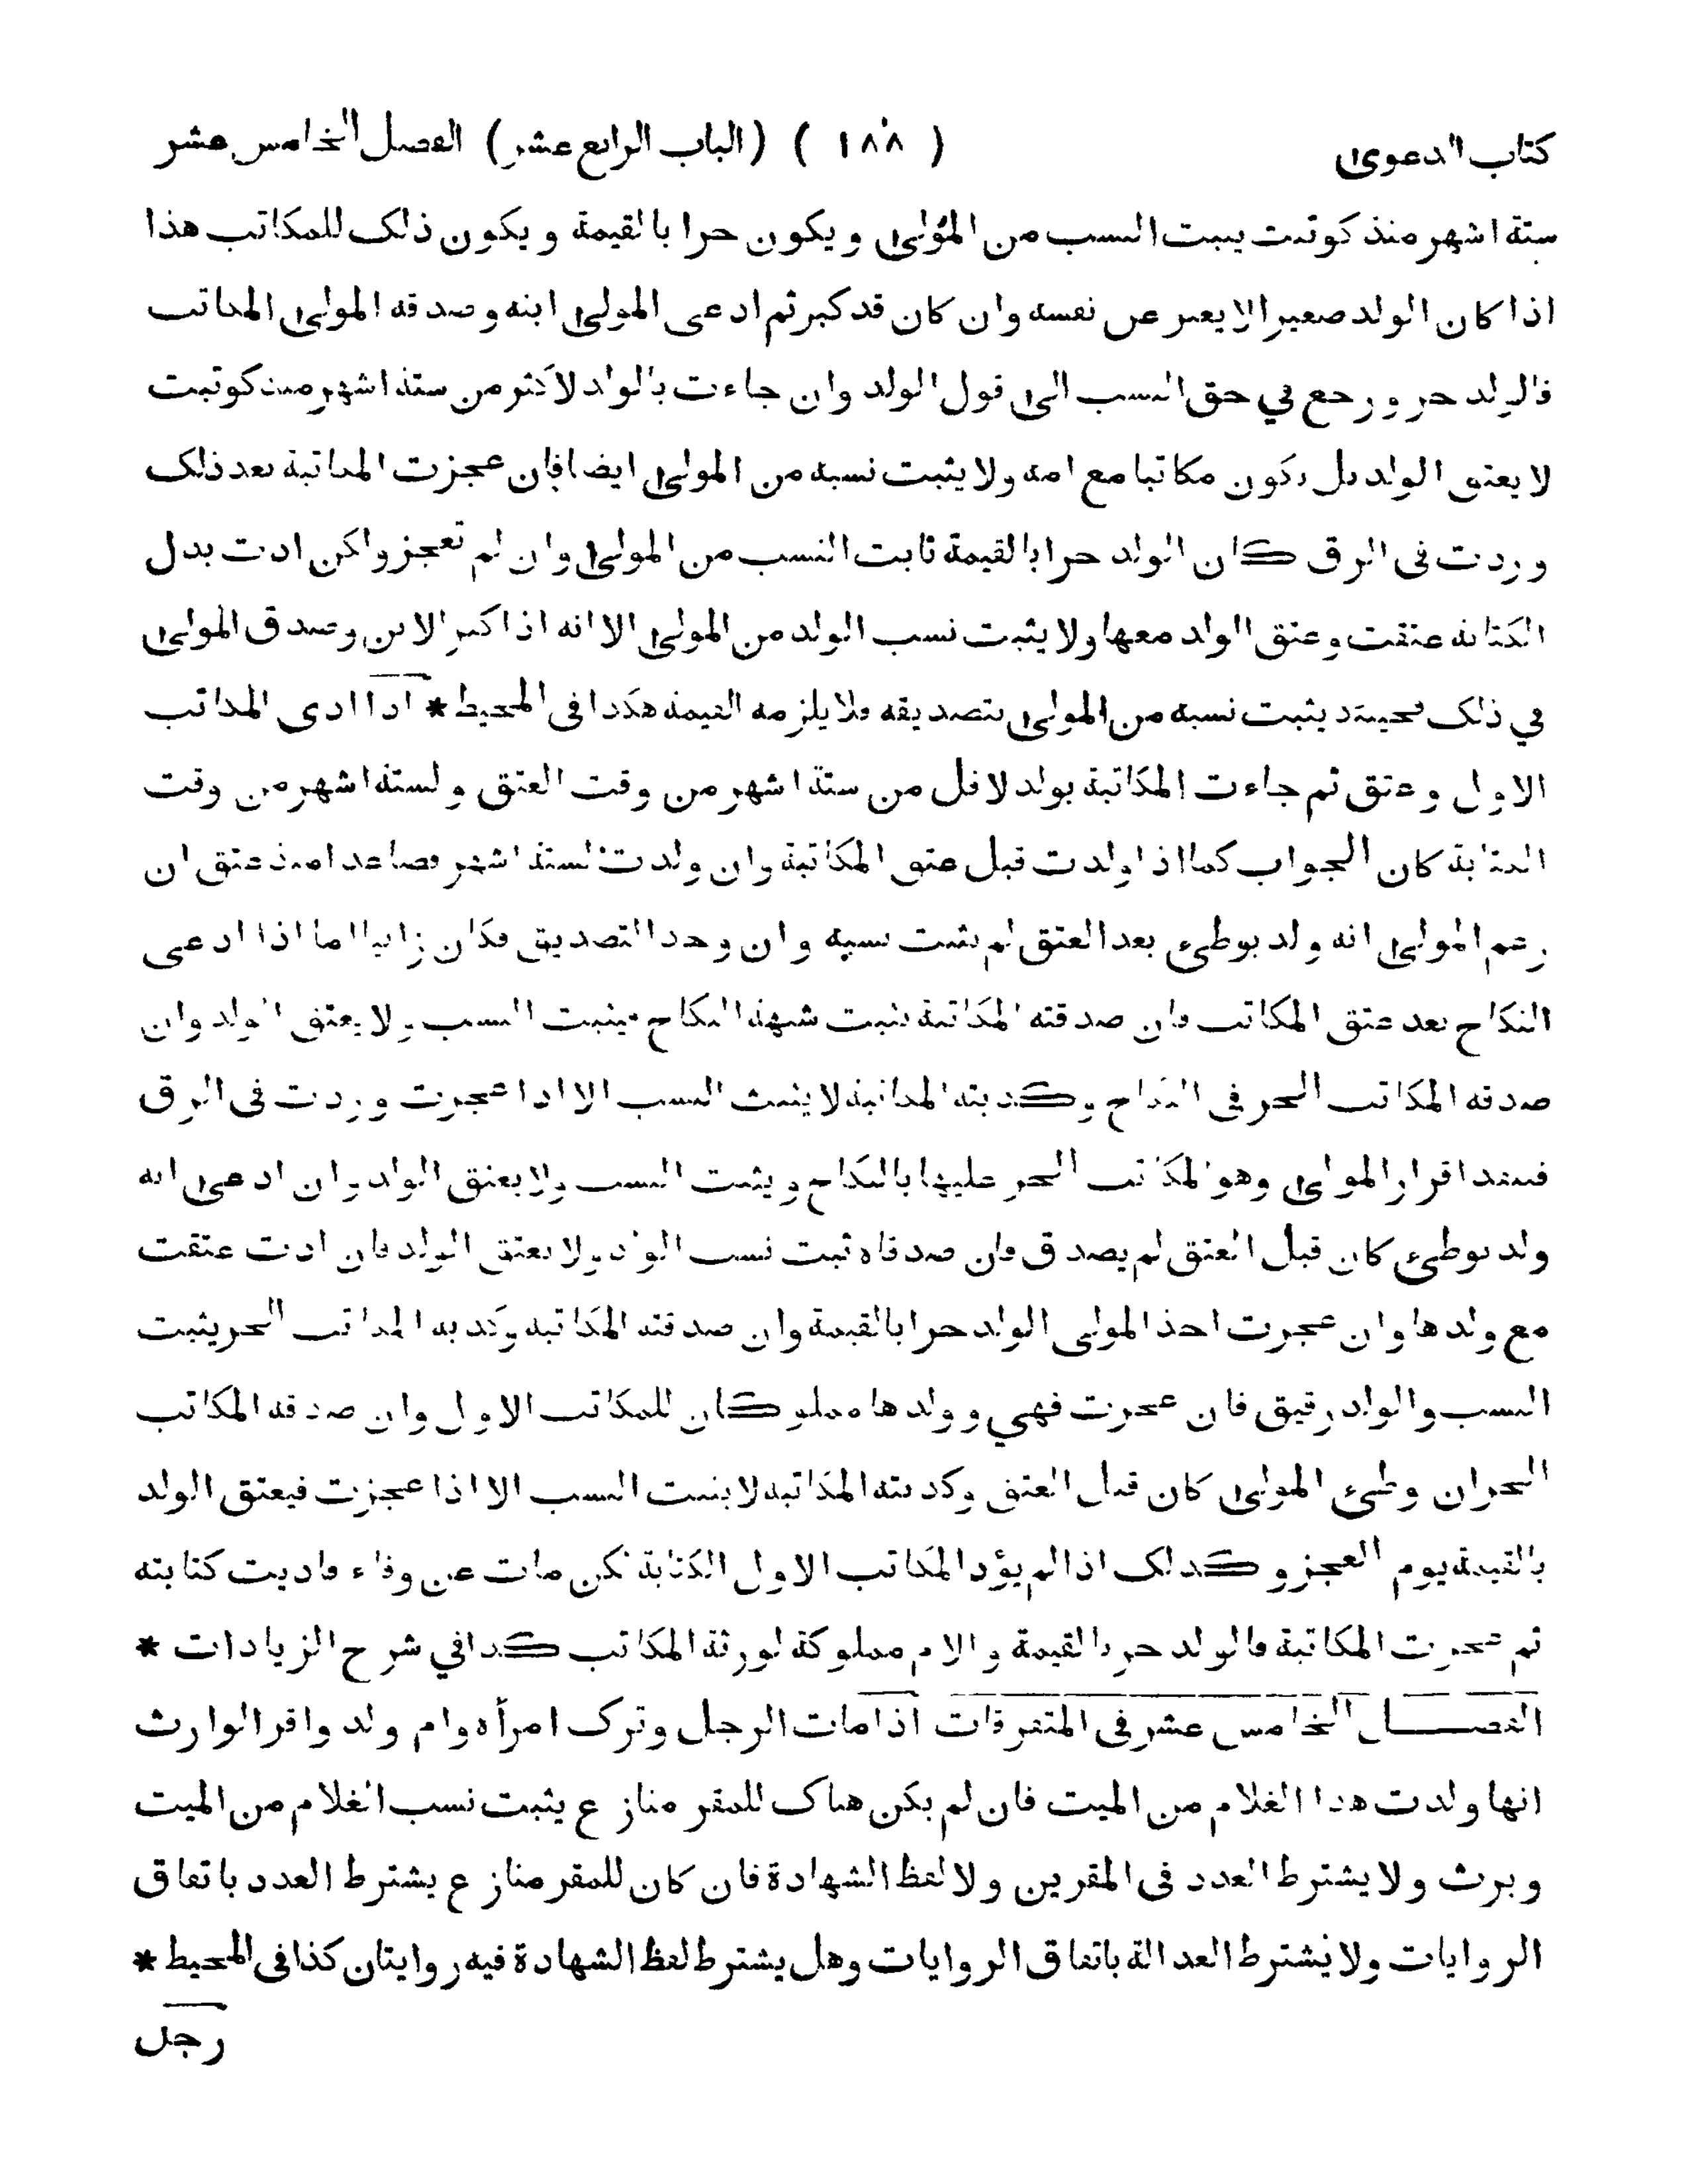 كتاب الدعوى ( ١٨٨ ) (الباب الرابع عشر) الفصل الخامس عشر
ستة اشهر منذ كوتبت يثبت النسب من المولى ويكون حرا بالقيمة ويكون ذلك للمكاتب هذا
اذا كان الولد صغيرا لا يعبر عن نفسه وان كان قد كبر ثم ادعى المولى ابنه وصدقه المولى المكاتب
فالولد حر ورجع في حق النسب الى قول الولد وان جاءت بالولد لاكثر من ستة اشهر منذ كوتبت
لا يعتق الولد بل يكون مكاتبا مع امه ولا يثبت نسبه من المولى ايضا فان عجزت المكاتبة بعد ذلك
وردت في الرق كان الولد حرا بالقيمة ثابت النسب من المولى وان لم تعجز ولكن ادت بدل
الكتابة عتقت وعتق الولد معها ولا يثبت نسب الولد من المولى الا انه اذا كبر الابن وصدق المولى
في ذلك فحينئذ يثبت نسبه من المولى بتصديقه فلا يلزمه القيمة هكذا في المحيط * اذا ادى المكاتب
الاول وعتق ثم جاءت المكاتبة بولد لاقل من ستة اشهر من وقت العتق ولستة اشهر من وقت
الكتابة كان الجواب كما اذا ولدت قبل عتق المكاتبة وان ولدت لستة اشهر فصاعدا منذ عتق ان
زعم المولى انه ولد بوطئ بعد العتق لم يثبت نسبه وان وجد التصديق فكان زانيا اما اذا ادعى
النكاح بعد عتق المكاتب فان صدقته المكاتبة يثبت شبهة النكاح فيثبت النسب ولا يعتق الولد وان
صدقه المكاتب الحر في النكاح وكذبته المكاتبة لا يثبت النسب الا اذا عجزت وردت في الرق
فينفذ اقرار المولى وهو المكاتب الحر عليها بالنكاح ويثبت النسب ولا يعتق الولد وان ادعى انه
ولد بوطئ كان قبل العتق لم يصدق فان صدقاه ثبت نسب الولد ولا يعتق الولد فان ادت عتقت
مع ولدها وان عجزت اخذ المولى الولد حرا بالقيمة وان صدقته المكاتبة وكذبه المكاتب الحر يثبت
النسب والولد رقيق فان عجزت فهي وولدها مملوكان للمكاتب الاول وان صدقه المكاتب
الحر ان وطئ المولى كان قبل العتق وكذبته المكاتبة لا يثبت النسب الا اذا عجزت فيعتق الولد
بالقيمة يوم العجز وكذلك اذا لم يؤد المكاتب الاول الكتابة لكن مات عن وفاء فاديت كتابته
ثم عجزت المكاتبة فالولد حر بالقيمة والام مملوكة لورثة المكاتب كذا في شرح الزيادات *
الفصل الخامس عشر في المتفرقات اذا مات الرجل وترك امرأة وام ولد واقر الوارث
انها ولدت هذا الغلام من الميت فان لم يكن هناك للمقر منازع يثبت نسب الغلام من الميت
ويرث ولا يشترط العدد في المقرين ولا لفظ الشهادة فان كان للمقر منازع يشترط العدد باتفاق
الروايات ولا يشترط العدالة باتفاق الروايات وهل يشترط لفظ الشهادة فيه روايتان كذا في المحيط *
رجل